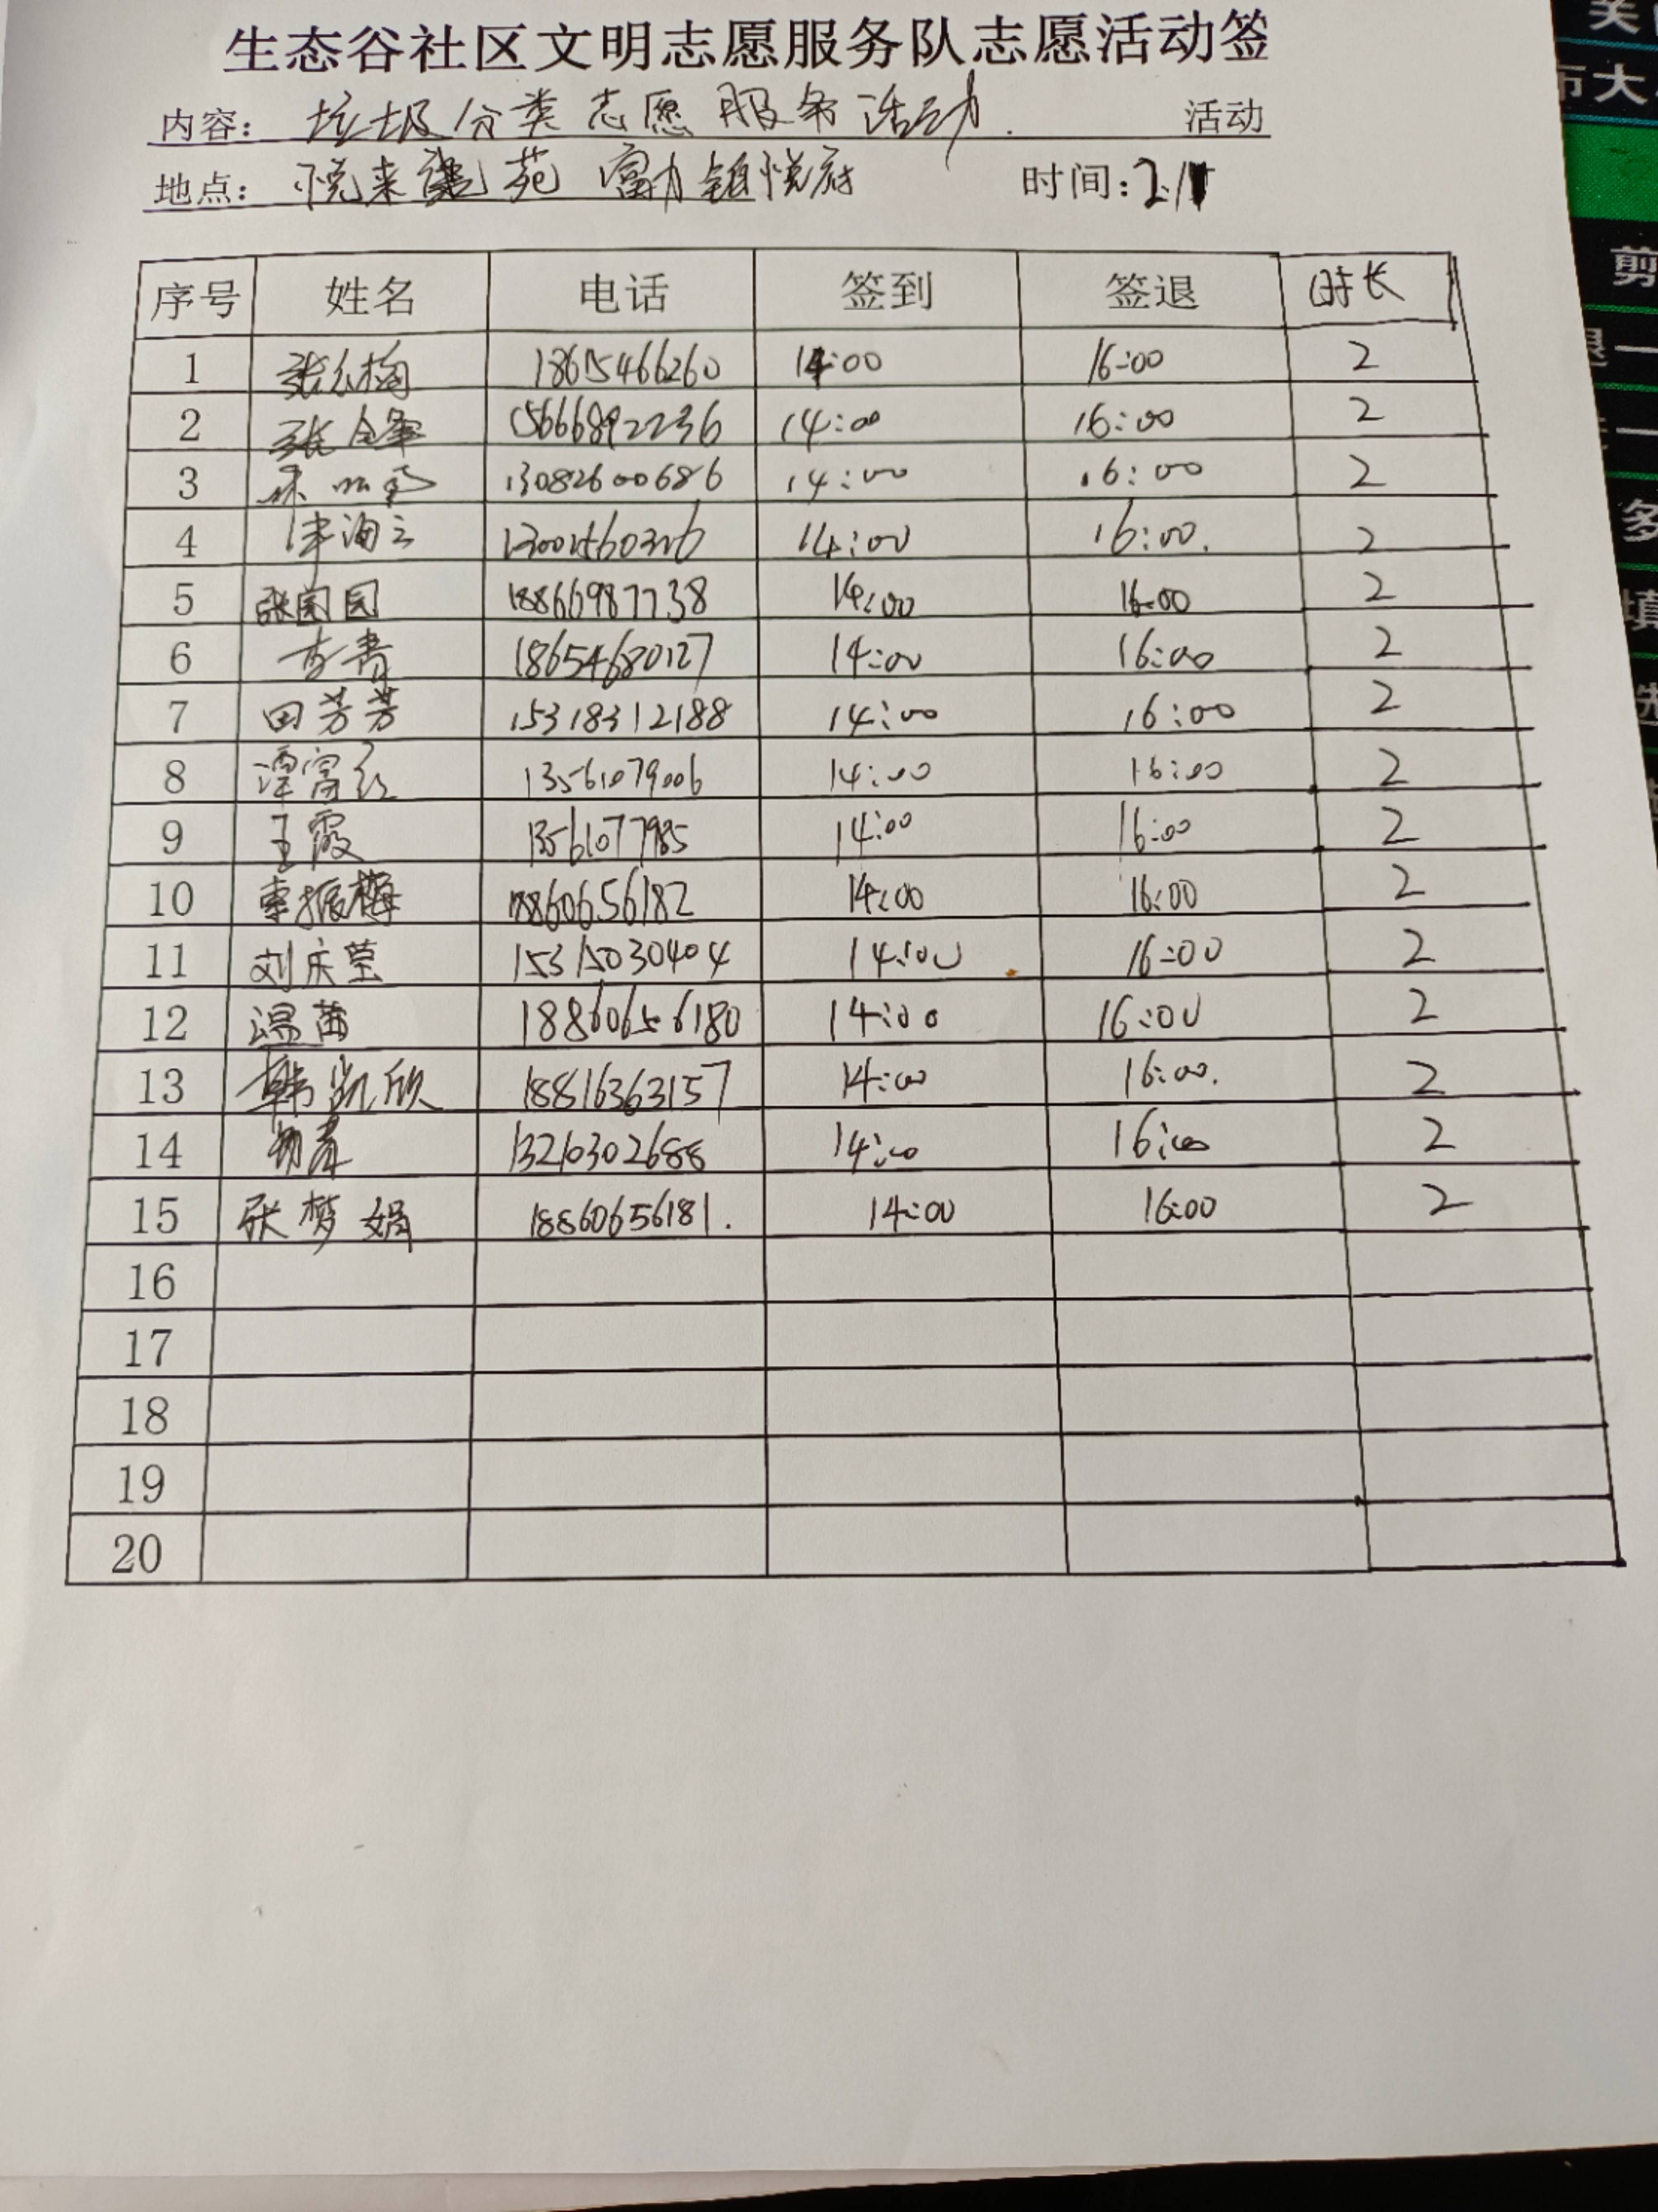 生态谷社区文明志愿服务队志愿活动签
内容: 垃圾分类志愿服务活动. 活动
地点: 悦来苑 富力铂悦府 时间: 2.1
序号 姓名 电话 签到 签退 时长
1 1865466260 14:00 16:00 2
2 张全军 15666892236 14:00 16:00 2
3 13082600686 14:00 16:00 2
4 14:00 16:00. 2
5 张园园 18866987738 14:00 16:00 2
6 18654680127 14:00 16:00 2
7 田芳芳 15318312188 14:00 16:00 2
8 谭富红 13561079006 14:00 16:00 2
9 王霞 13561077985 14:00 16:00 2
10 李振梅 18860656182 14:00 16:00 2
11 刘庆莹 15315030404 14:00 16:00 2
12 温苗 18860656180 14:00 16:00 2
13 韩凯欣 18816363157 14:00 16:00. 2
14 13210302688 14:00 16:00 2
15 张梦娟 18860656181. 14:00 16:00 2
16
17
18
19
20
市大
剪
多
填